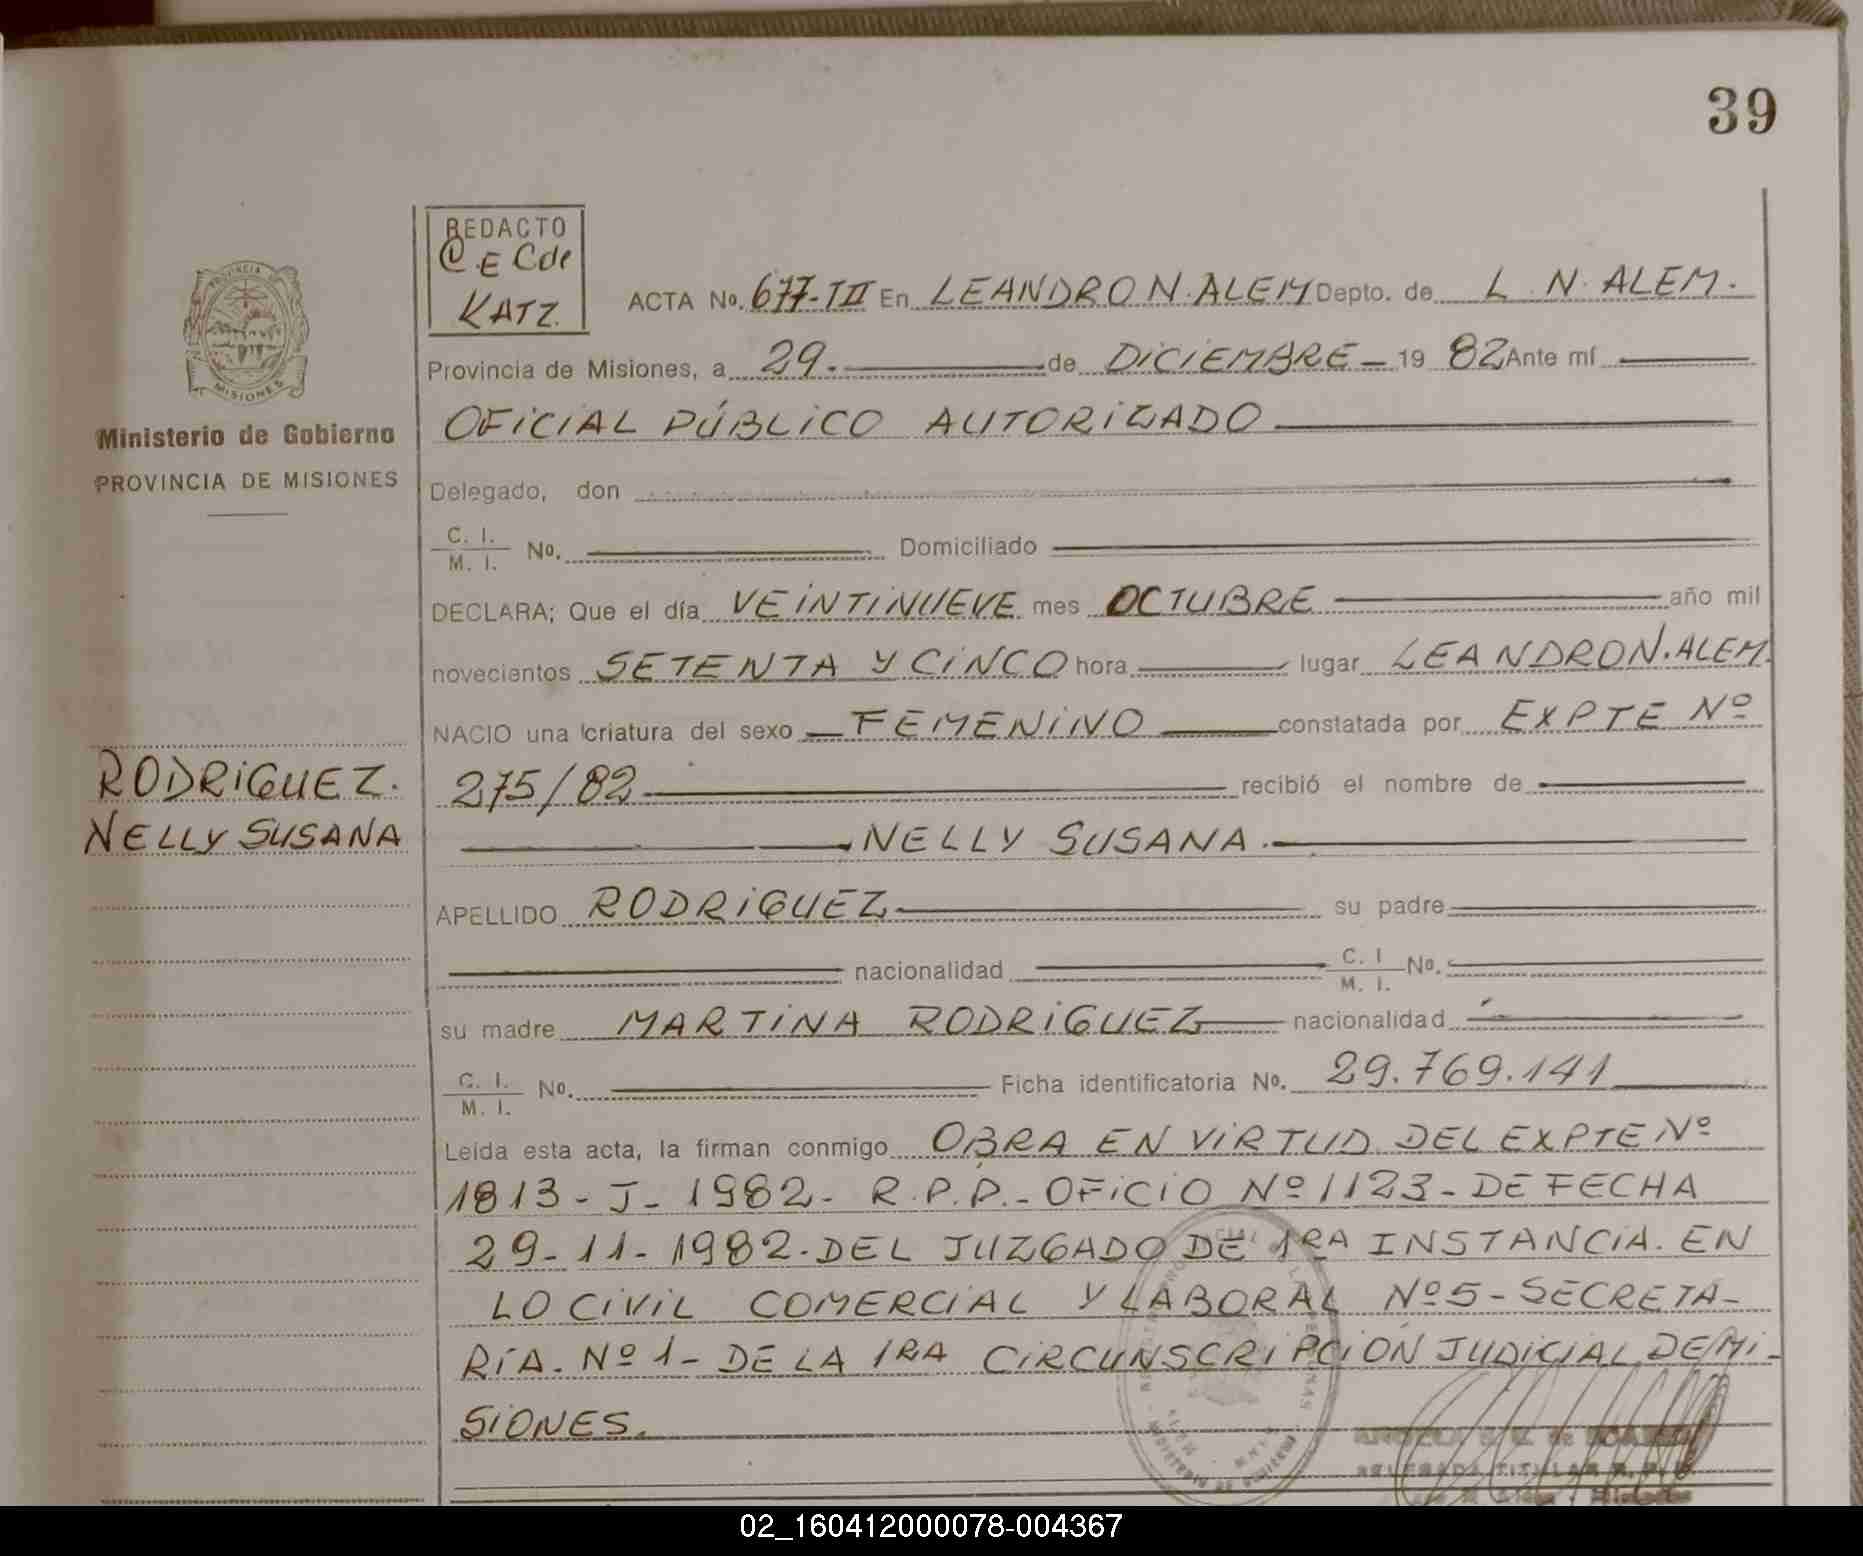 39
REDACTO
C.E Cde
KATZ.
ACTA No. 677-TII En LEANDRO N. ALEM Depto. de L. N. ALEM.
Provincia de Misiones, a 29. de DICIEMBRE 19 82 Ante mí
OFICIAL PÚBLICO AUTORIZADO
Delegado, don
C. I.
M. I. No. Domiciliado
DECLARA; Que el día VEINTINUEVE mes OCTUBRE año mil
novecientos SETENTA Y CINCO hora lugar LEANDRO N. ALEM.
NACIO una criatura del sexo FEMENINO constatada por EXPTE Nº
275/82 recibió el nombre de
NELLY SUSANA.
APELLIDO RODRIGUEZ su padre
nacionalidad C. I
M. I. No.
su madre MARTINA RODRIGUEZ nacionalidad
C. I.
M. I. No. Ficha identificatoria No. 29.769.141
Leída esta acta, la firman conmigo OBRA EN VIRTUD DEL EXPTE Nº
1813-J-1982- R.P.P.- OFICIO Nº 1123- DE FECHA
29-11-1982. DEL JUZGADO DE 1RA INSTANCIA. EN
LO CIVIL COMERCIAL Y LABORAL Nº5- SECRETA-
RÍA. Nº 1- DE LA 1RA CIRCUNSCRIPCIÓN JUDICIAL DE MI-
SIONES.
DELEGADA TITULAR R. P. P.
PROVINCIA DE
MISIONES
Ministerio de Gobierno
PROVINCIA DE MISIONES
RODRIGUEZ.
NELLY SUSANA
02_160412000078-004367